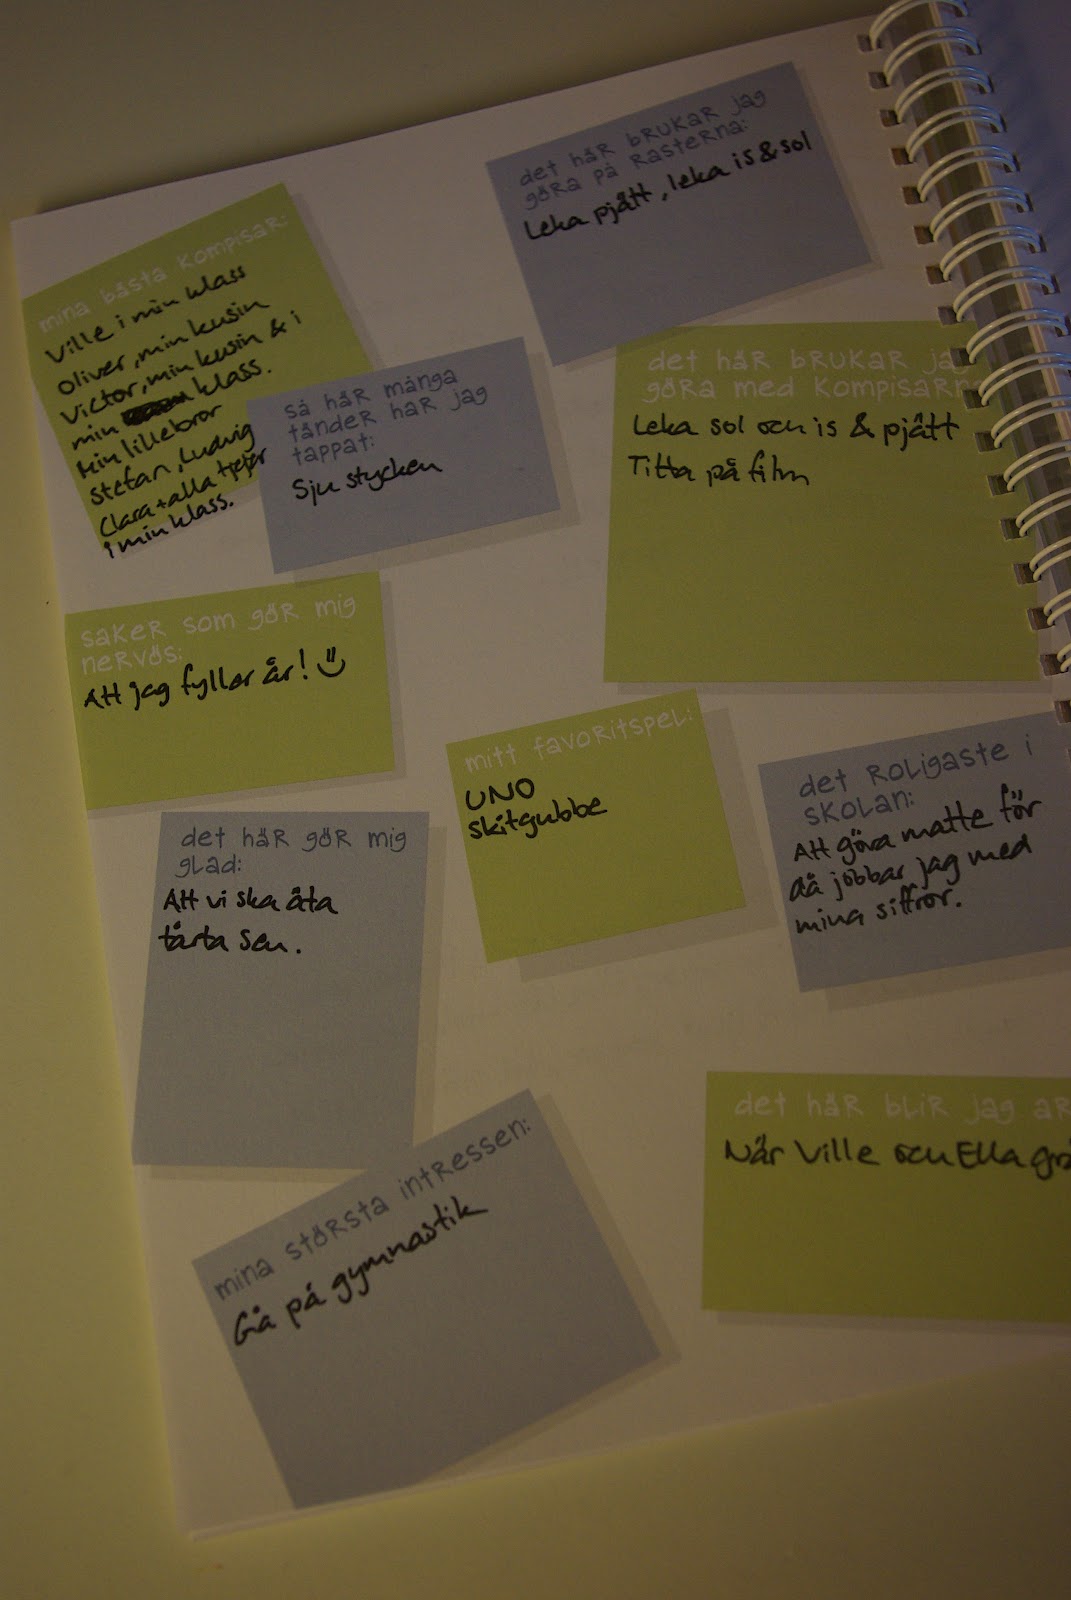 det här brukar jag
göra på rasterna:
Leka pjätt, leka is & sol
mina bästa kompisar:
Ville i min klass
Oliver, min kusin
Victor, min kusin & i
min klass.
Min lillebror
Stefan, Ludvig
Clara + alla tjejer
i min klass.
så här många
tänder har jag
tappat:
Sju stycken
det här brukar jag
göra med kompisarna
Leka sol och is & pjätt
Titta på film
saker som gör mig
nervös:
Att jag fyller år!
mitt favoritspel:
UNO
skitgubbe
det roligaste i
skolan:
Att göra matte för
då jobbar jag med
mina siffror.
det här gör mig
glad:
Att vi ska äta
tårta sen.
det här blir jag ar
När Ville och Ella
mina största intressen:
Gå på gymnastik